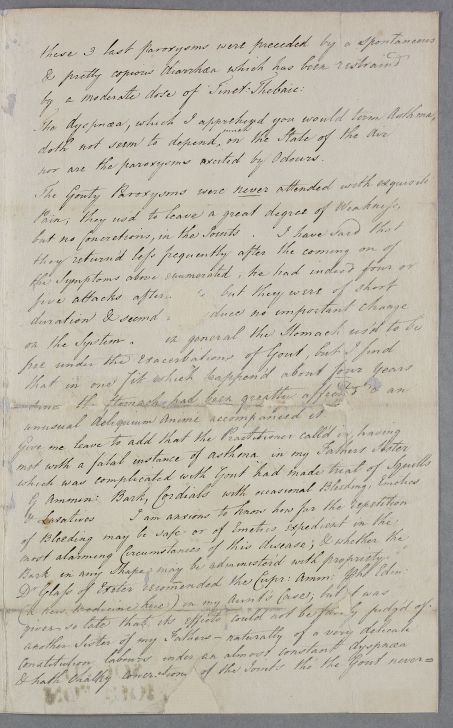 these 3 last Paroxysms were preceded by a spontaneous
& pretty copious Diarrhæa which has been restraind
by a moderate dose of Tinct: Thebaic:
The dyspnæa, which I apprehend you would term Asthma,
doth not seem to depend, much on the State of the Air
nor are the paroxysms excited by Odours.
The Gouty Paroxysms were never attended with exquisite
Pain; they used to leave a great degree of Weakness,
but no Concretions, in the Joints. I have said that
they return'd less frequently after the coming on of
the Symptoms above enumerated, he had indeed four or
five attacks after but they were of short
duration & seem'd duce no important change
on the System. in general the Stomach used to be
free under the Exacerbations of Gout, but I find
that in one fit which happen'd about four Years
since the Stomach had been greatly affected & an
unusual deliquium Animi accompanied it
Give me leave to add that the Practitioner call'd in, having
met with a fatal instance of asthma in my Fathers Sister
which was complicated with Gout had made trial of Squills
G Ammon: Bark, Cordials with occasional Bleeding, Emetics
& Laxatives I am anxious to know how far the repetition
of Bleeding may be safe or of Emetics expedient in the
most alarming Circumstances of this disease; & whether the
Bark in any Shape may be administer'd with propriety.
Dr Glass of Exeter recomended the Cupr: Amm: Ph: Edin:
(a new Medicine here) in my aunt's Case; but it was
given so late that its effects could not be fairly judg'd of.
another Sister of my Fathers - naturally of a very delicate
Constitution labours under an almost constant dyspnæa
& hath Chalky Concretions of the Joints tho' the Gout never